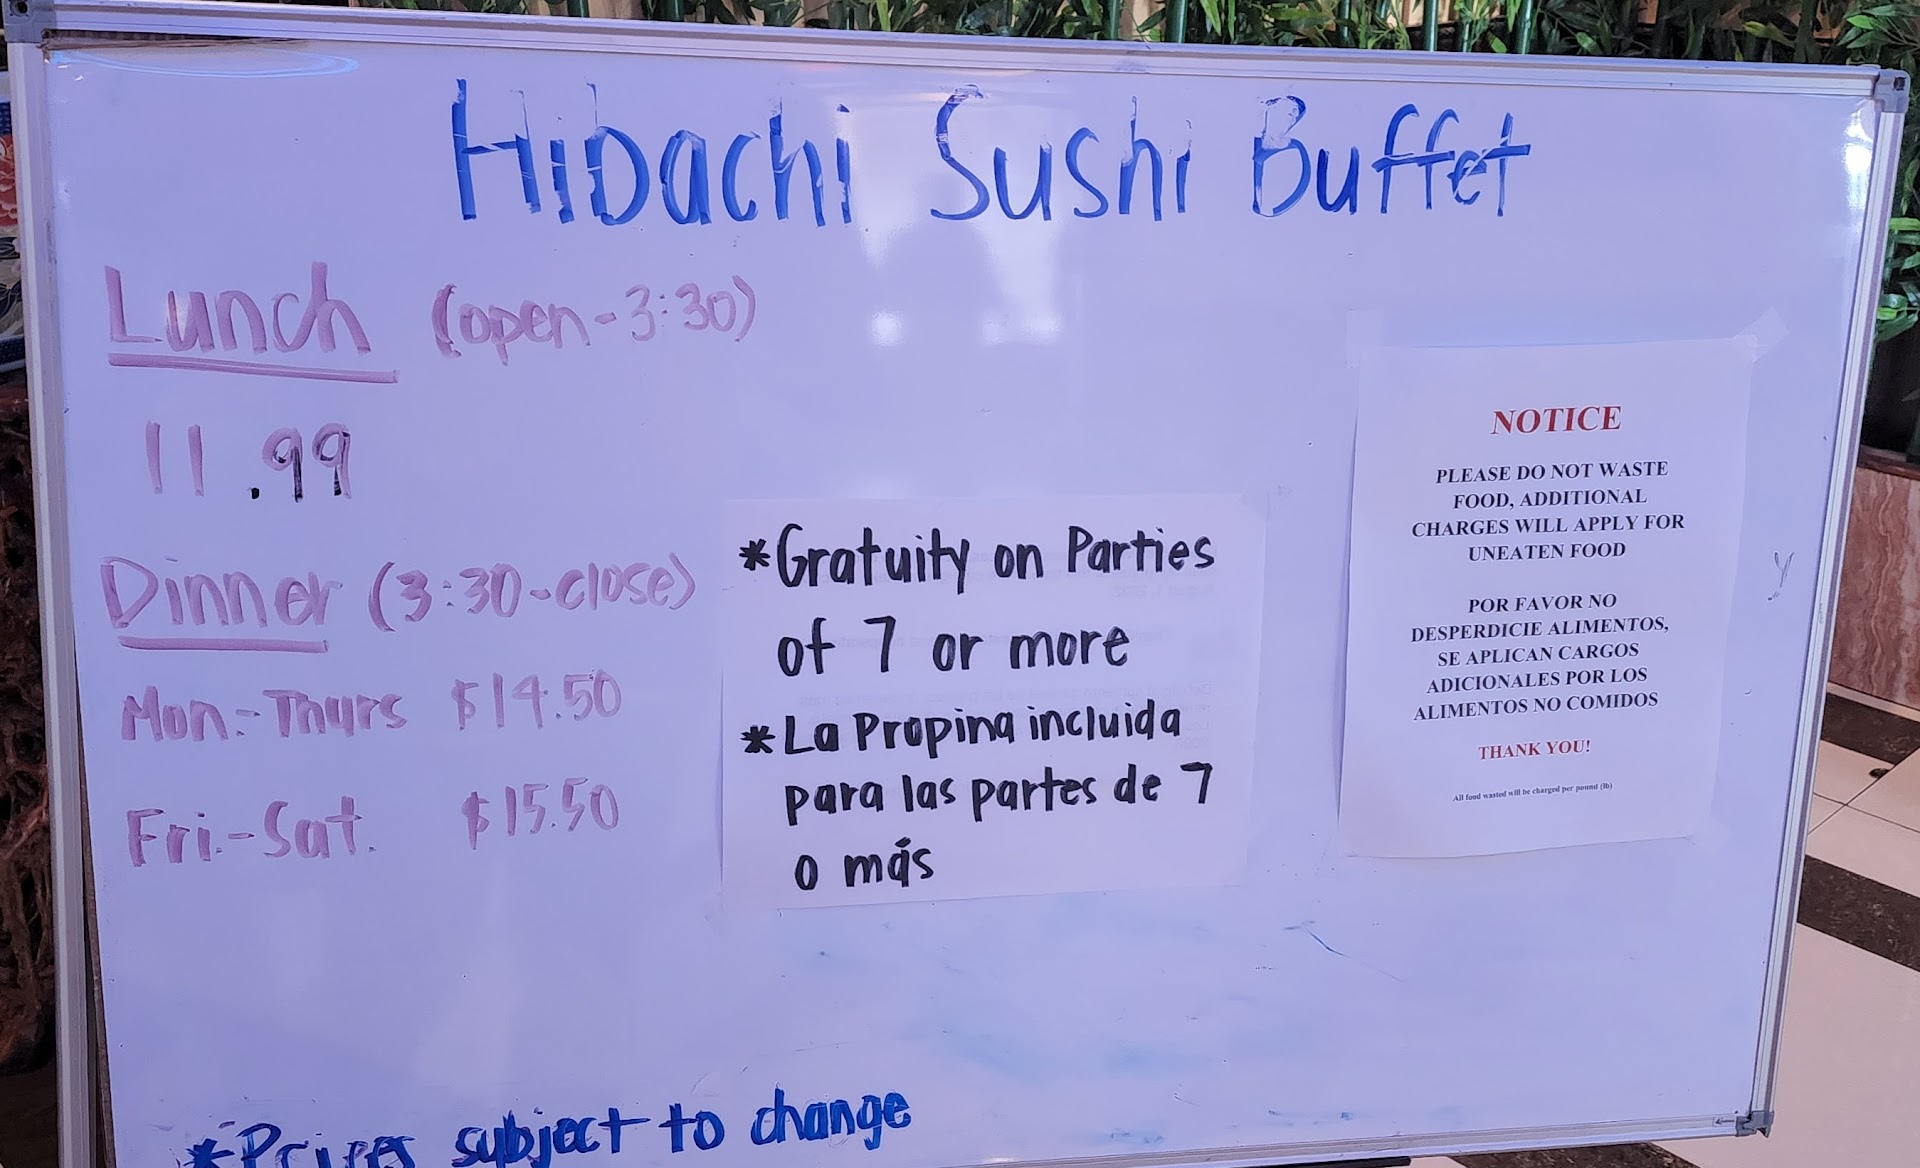 Hibachi Sushi Buffet
Lunch (open-3:30)
11.99
Dinner (3:30-close)
Mon.-Thurs $14.50
Fri.-Sat. $15.50
*Gratuity on Parties
of 7 or more
*La Propina incluida
para las partes de 7
o más
NOTICE
PLEASE DO NOT WASTE
FOOD, ADDITIONAL
CHARGES WILL APPLY FOR
UNEATEN FOOD
POR FAVOR NO
DESPERDICIE ALIMENTOS,
SE APLICAN CARGOS
ADICIONALES POR LOS
ALIMENTOS NO COMIDOS
THANK YOU!
All food wasted will be charged per pound (lb)
*Prices subject to change